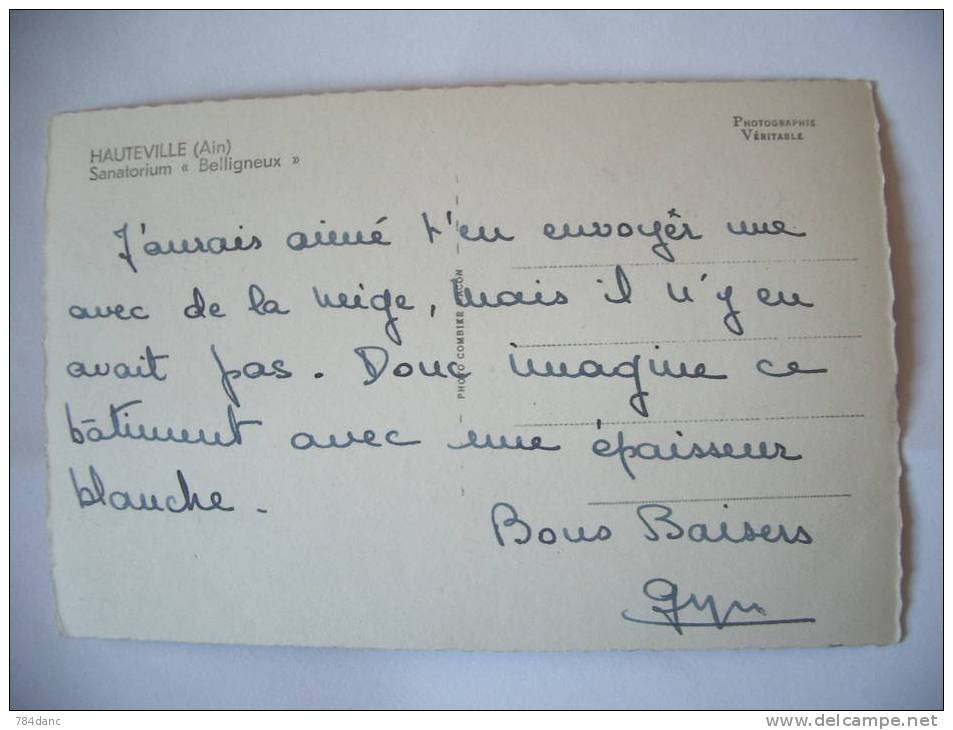 HAUTEVILLE (Ain)
Sanatorium « Belligneux »
PHOTOGRAPHIE
VÉRITABLE
J'aurais aimé t'en envoyer une
avec de la neige, mais il n'y en
avait pas. Donc imagine ce
bâtiment avec une épaisseur
blanche.
PHOTO COMBIER MACON
Bons Baisers
784danc
www.delcampe.net